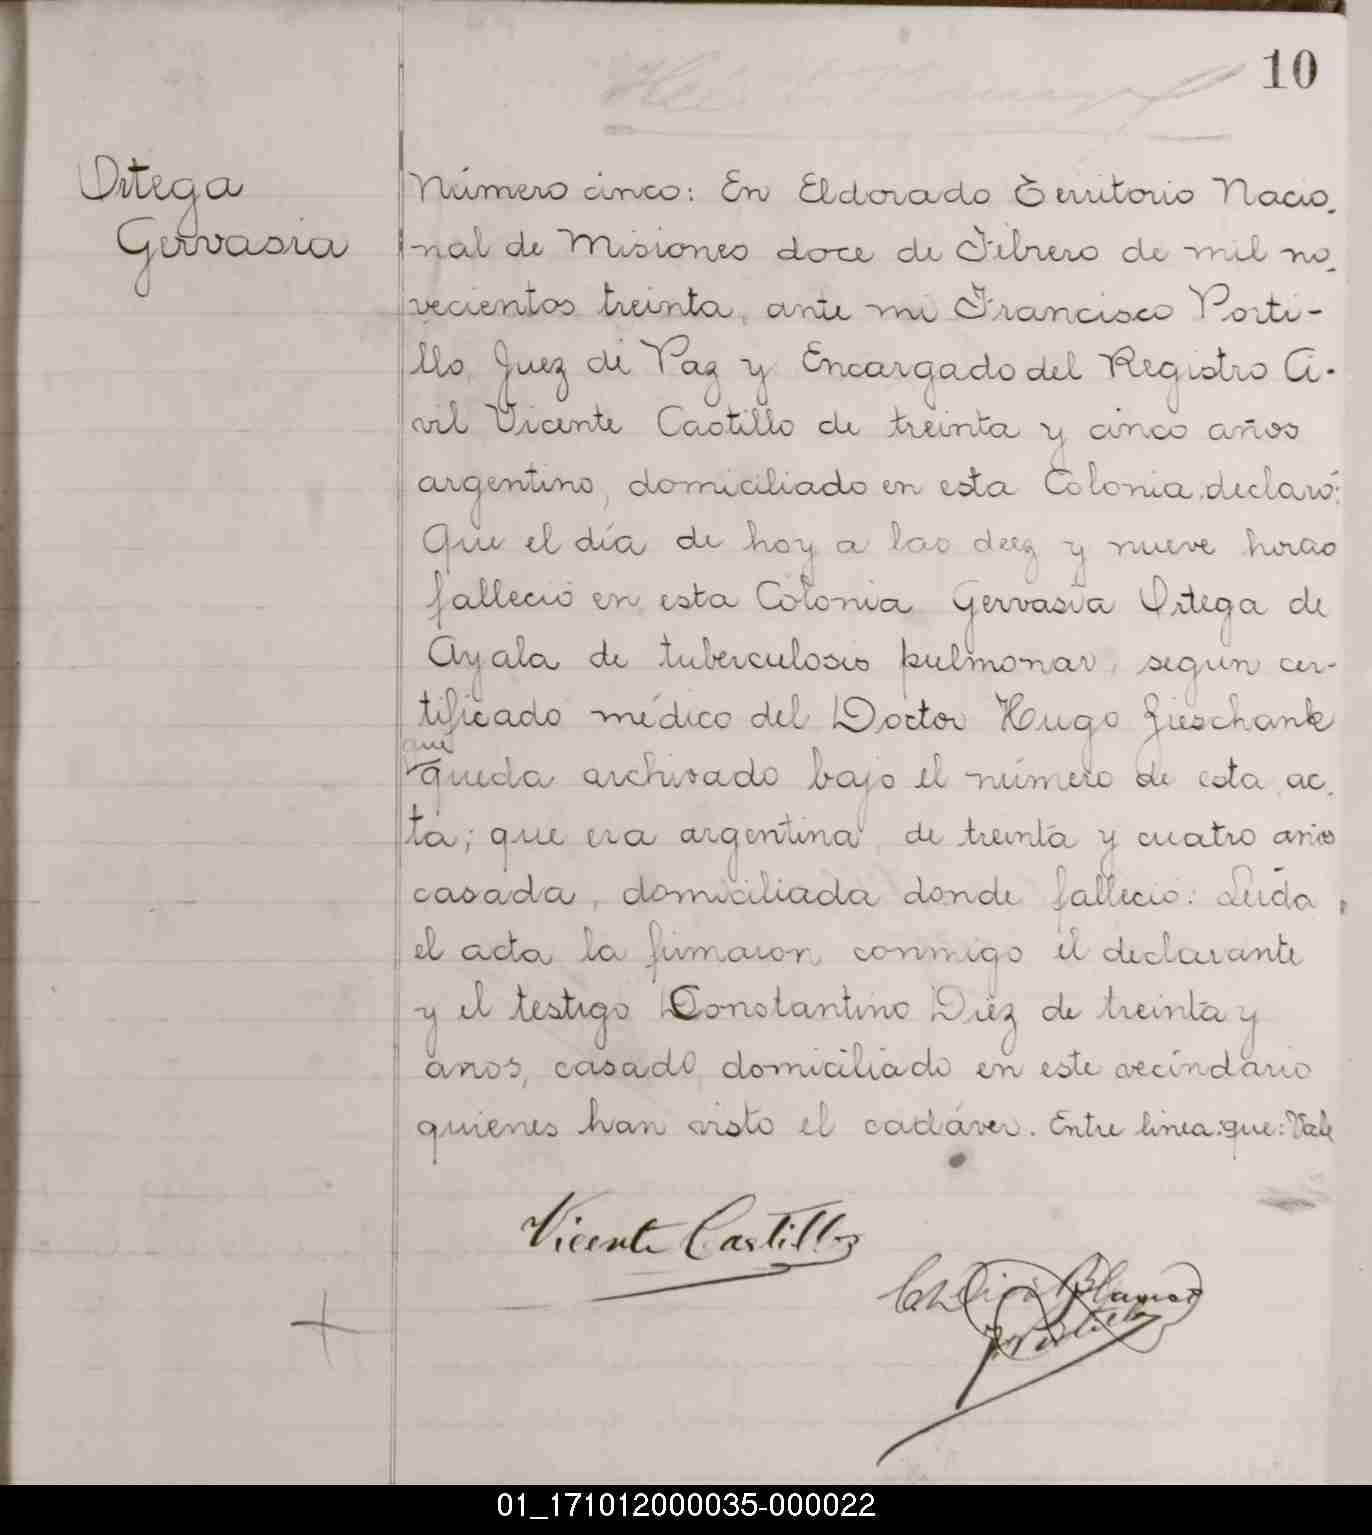 10
Ortega
Gervasia
Número cinco: En Eldorado Territorio Nacio-
nal de Misiones doce de Febrero de mil no-
vecientos treinta, ante mi Francisco Porti-
llo, Juez de Paz y Encargado del Registro Ci-
vil Vicente Castillo de treinta y cinco años
argentino, domiciliado en esta Colonia, declaró:
Que el día de hoy a las diez y nueve horas
falleció en esta Colonia Gervasia Ortega de
Ayala de tuberculosis pulmonar, segun cer-
tificado médico del Doctor Hugo Zieschank
que
queda archivado bajo el número de esta ac-
ta; que era argentina, de treinta y cuatro años
casada, domiciliada donde falleció: Leída
el acta la firmaron conmigo el declarante
y el testigo Constantino Diéz de treinta y
anos, casado, domiciliado en este vecindario
quienes han visto el cadáver. Entre linea: que: Vale
Vicente Castillo
01_171012000035-000022